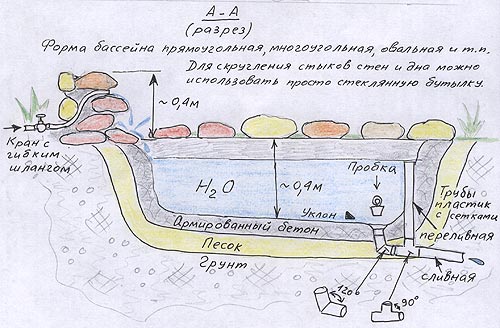 А-А
(разрез)
Форма бассейна прямоугольная, многоугольная, овальная и т.п.
Для скругления стыков стен и дна можно
использовать просто стеклянную бутылку.
~0,4м
Кран с
гибким
шлангом
H₂O
~0,4м
Пробка
Уклон
Трубы
пластик
с сетками
переливная
сливная
Армированный бетон
Песок
Грунт
120°
90°